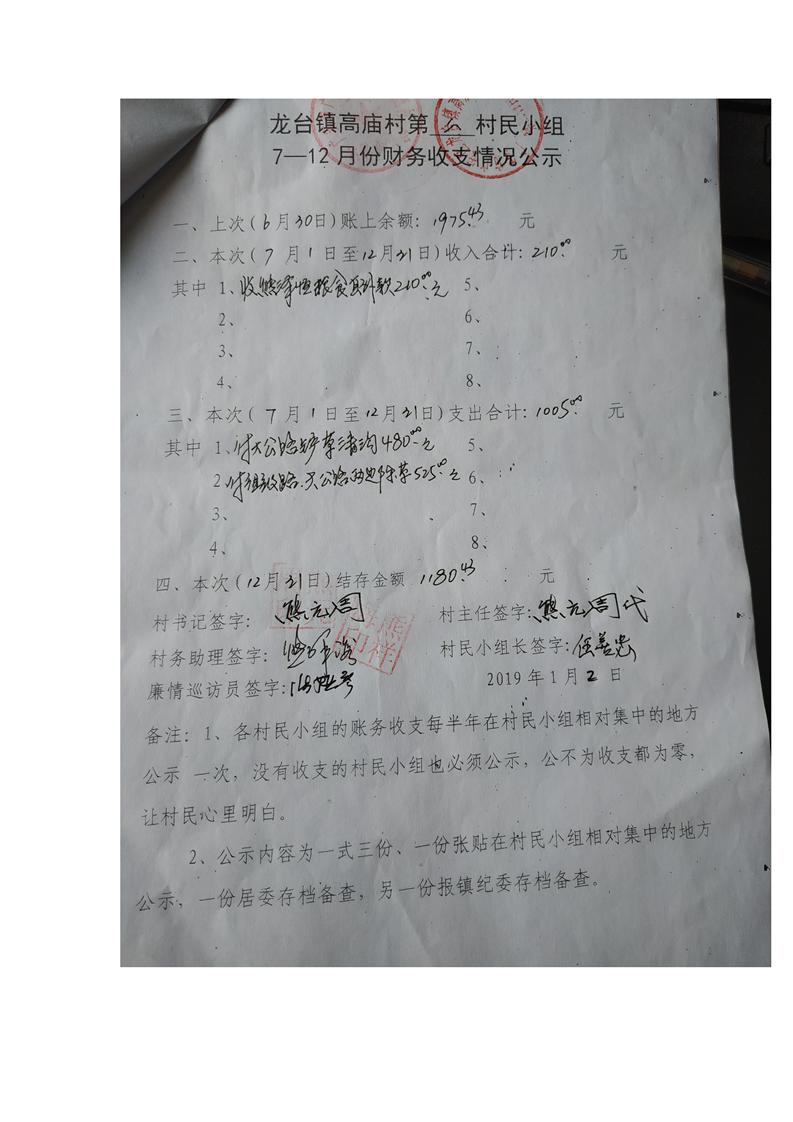 龙台镇高庙村第 六 村民小组
7—12月份财务收支情况公示
一、上次(6月30日)账上余额：1975.43 元
二、本次(7月1日至12月31日)收入合计：210.00 元
其中 1、收 粮食 款210.00元 5、
2、 6、
3、 7、
4、 8、
三、本次(7月1日至12月31日)支出合计：1005.00 元
其中 1、付大公路铲草清沟480.00元 5、
2、付组 路、大公路两边除草525.00元 6、
3、 7、
4、 8、
四、本次(12月31日)结存金额 1180.43 元
村书记签字：熊元周 村主任签字：熊元周代
村务助理签字： 村民小组长签字：任善忠
廉情巡访员签字： 2019年1月2日
备注：1、各村民小组的账务收支每半年在村民小组相对集中的地方
公示 一次，没有收支的村民小组也必须公示，公不为收支都为零，
让村民心里明白。
2、公示内容为一式三份、一份张贴在村民小组相对集中的地方
公示，一份居委存档备查，另一份报镇纪委存档备查。